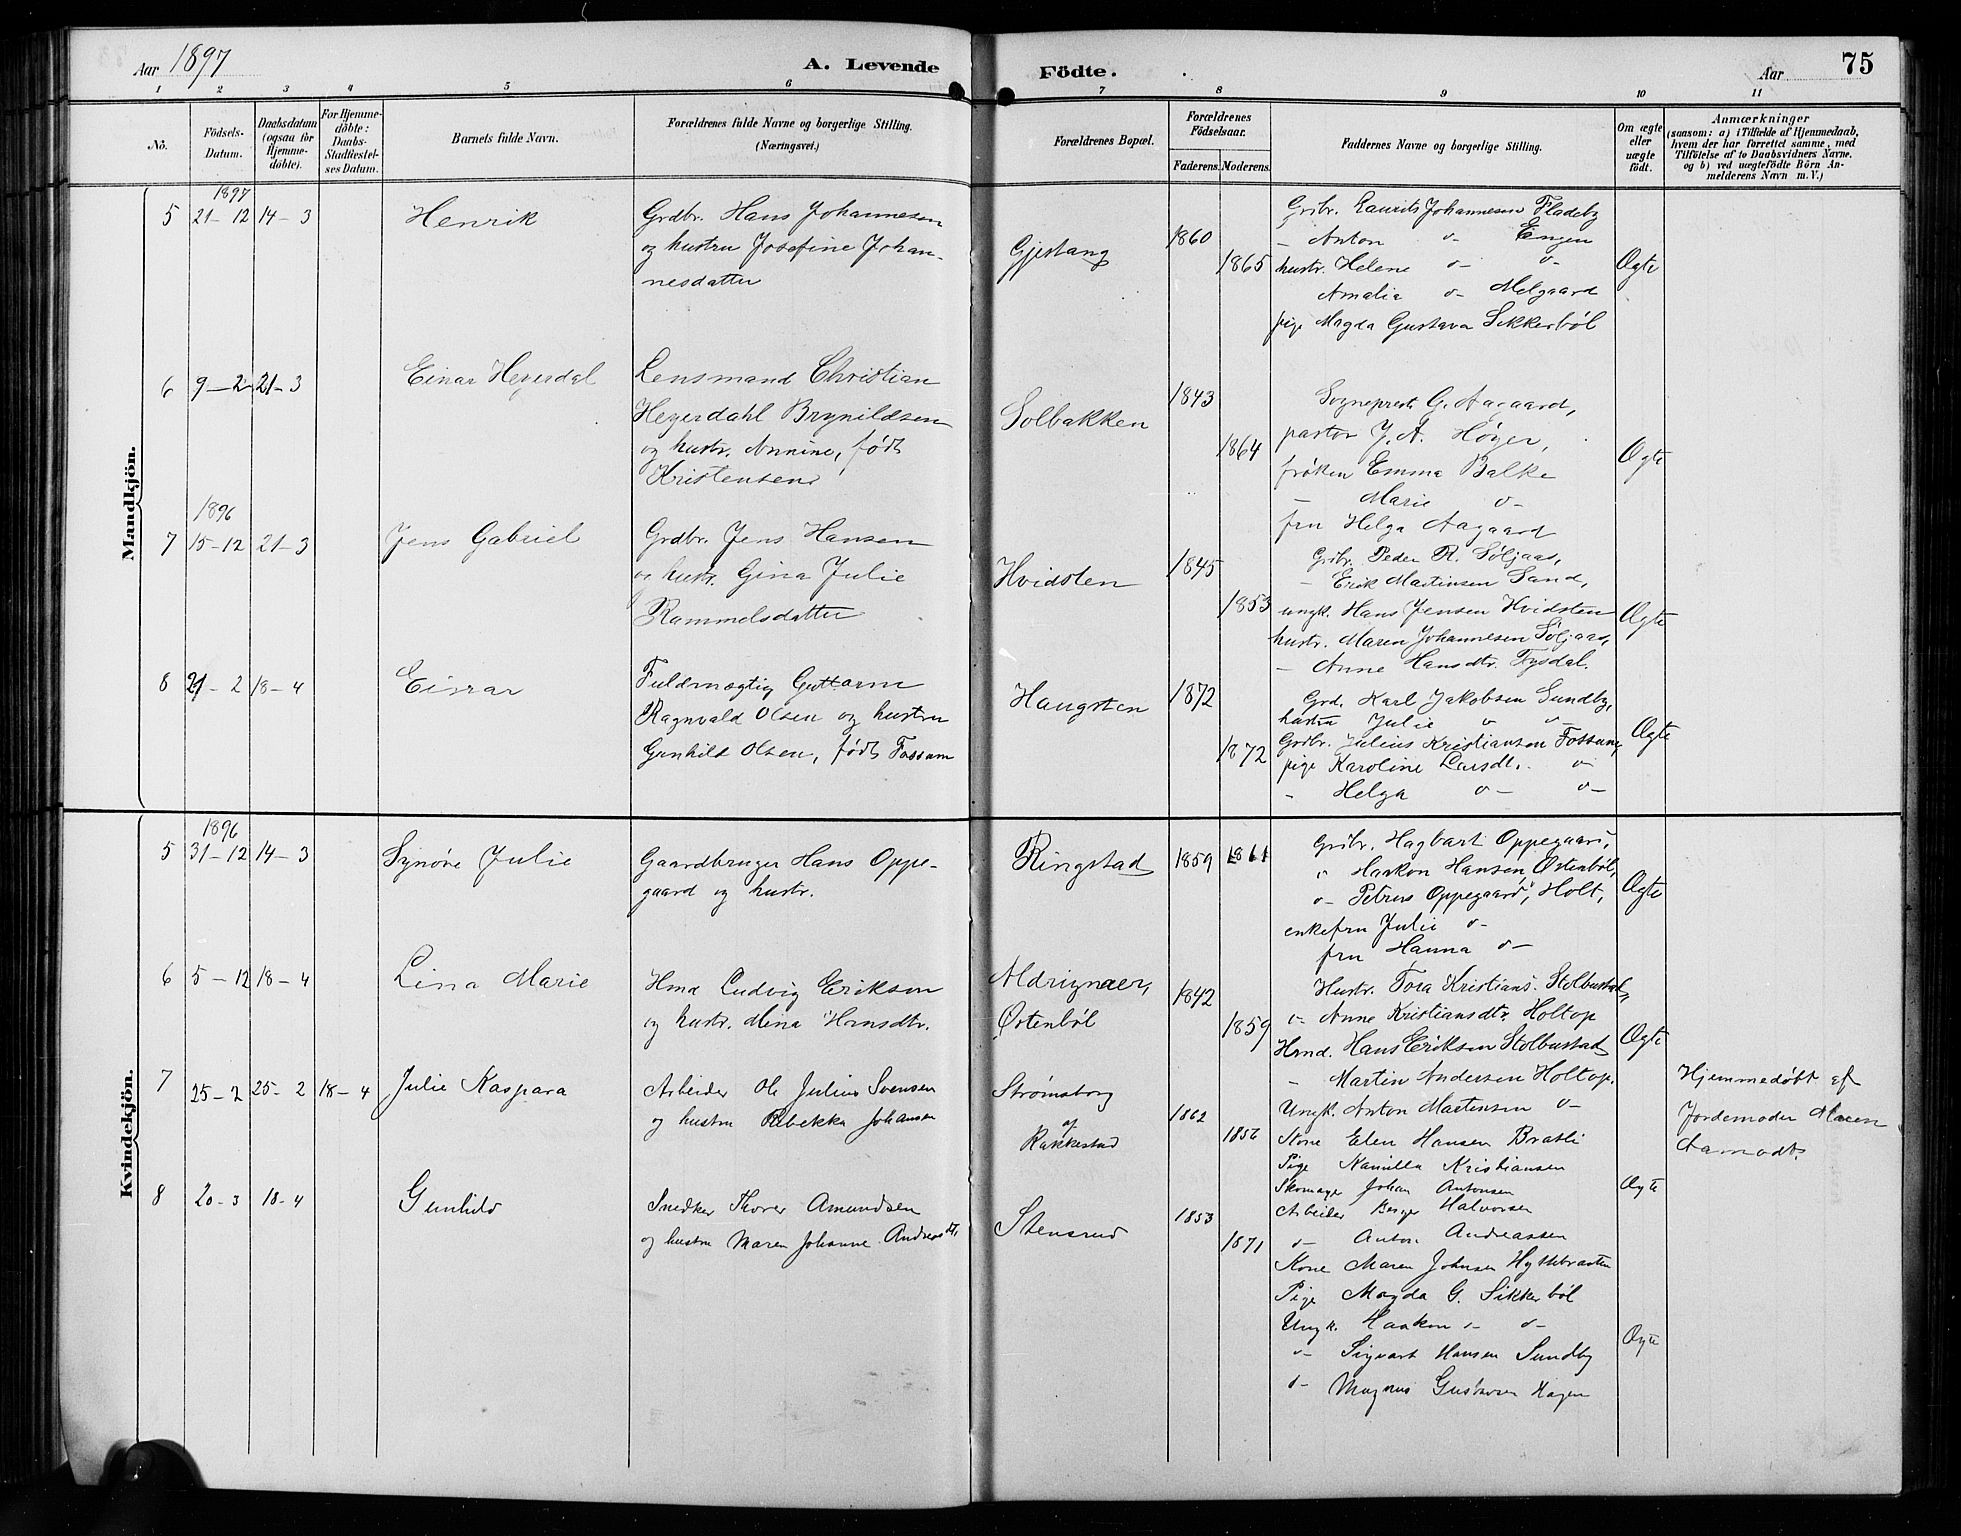 Aar 1897
A. Levende
Födte.
Aar
75
1 2 3 4 5 6 7 8 9 10 11
No.
Födsels-Datum.
Daabsdatum (ogsaa för Hjemmedöbte).
For Hjemmedöbte: Daabs-Stadfæstelses Datum.
Barnets fulde Navn.
Forældrenes fulde Navne og borgerlige Stilling.
(Næringsvei.)
Forældrenes Bopæl.
Forældrenes Födselsaar.
Faderens. Moderens.
Faddernes Navne og borgerlige Stilling.
Om ægte eller uægte födt.
Anmærkninger
(saasom: a) i Tilfælde af Hjemmedaab,
hvem der har forrettet samme, med
Tilföielse af to Daabsvidners Navne.
og b) ved uægtefödte Börn An-
melderens Navn m.V.)
Mandkjön.
1897
5 21-12 14-3 Henrik
Grdbr. Hans Johannesen
og hustru Josefine Johan-
nesdatter
Gjestang
1860
1865
Grdbr. Laurits Johannesen Fladeby
- Anton o- Engen
hustr. Helene o- o-
Amalia o- Melgaard
pige Magda Gustava Sikkerbøl
Ægte
6 9-2 21-3 Einar Heyerdal
Lensmand Christian
Heyerdahl Brynildsen
og hustr. Annine, født
Kristensen
Solbakken
1843
1864
Sogneprest G. Aagaard,
pastor J. A. Höyer,
fröken Emma Balke
- Marie o-
fru Helga Aagaard
Ægte
1896
7 15-12 21-3 Jens Gabriel
Grdbr. Jens Hansen
og hustr. Gina Julie
Rammelsdatter
Hvidsten
1845
1853
Grdbr. Peder R. Søljaas,
- Erik Martinsen Sand,
ungk. Hans Jensen Hvidsten
hustr. Maren Johannesen Søljaas,
- Anne Hansdtr. Tysdal.
Ægte
8 21-2 18-4 Einar
Fuldmægtig Guttorm
Ragnvald Olsen og hustru
Gunhild Olsen, født Fossum
Haugsten
1872
1872
Grd. Karl Jakobsen Sundby,
hustru Julie o o-
Grdbr. Julius Kristiansen Fossum,
pige Karoline Larsdt. o-
- Helga o- o-
Ægte
Kvindekjön.
1896
5 31-12 14-3 Synøve Julie
Gaardbruger Hans Oppe-
gaard og hustr.
Ringstad
1859 1861
Grdbr. Hagbart Oppegaard,
" Haakon Hansen, Østenbøl,
o- Petrus Oppegaard, Holt,
enkefru Julie o-
fru Hanna o-
Ægte
6 5-12 18-4 Lina Marie
Hmd Ludvig Eriksen
og hustr. Mina Hansdtr.
Aldrignær,
Østenbøl
1842
1859
Hustr. Tora Kristians. Stolbustad,
o- Anne Kristiansdtr. Holtop
Hmd. Hans Eriksen Stolbustad
- Martin Andersen Holtop.
Ungk. Anton Martensen o-
Ægte
7 25-2 25-2 18-4 Julie Kaspara
Arbeider Ole Julius Svensen
og hustru Rebekka Johansen
Strømsborg
af
Rakkestad
1862
1856
Kone Elen Hansen Bratli
Pige Kamilla Kristiansen
Skomager Johan Antonsen
Arbeider Berger Halvorsen
o- Anton Andreassen
Ægte
Hjemmedøbt af
Jordemoder Maren
Aamodt.
8 20-3 18-4 Gunhild
Snedker Thorer Amundsen
og hustru Maren Johanne Andreasdt.
Stensrud
1853
1871
Kone Maren Johnsen Hyttebraaten
Pige Magda G. Sikkerbøl
Ungk. Haakon o- o-
o- Sigvart Hansen Sundby
o- Magnus Gustavsen Hagen
Ægte